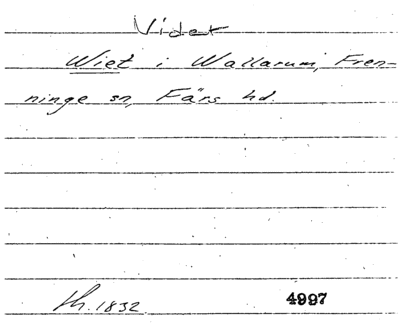 Videt
Wiet i Wallarum, Fren-
ninge sn, Färs hd.
th. 1832
4997